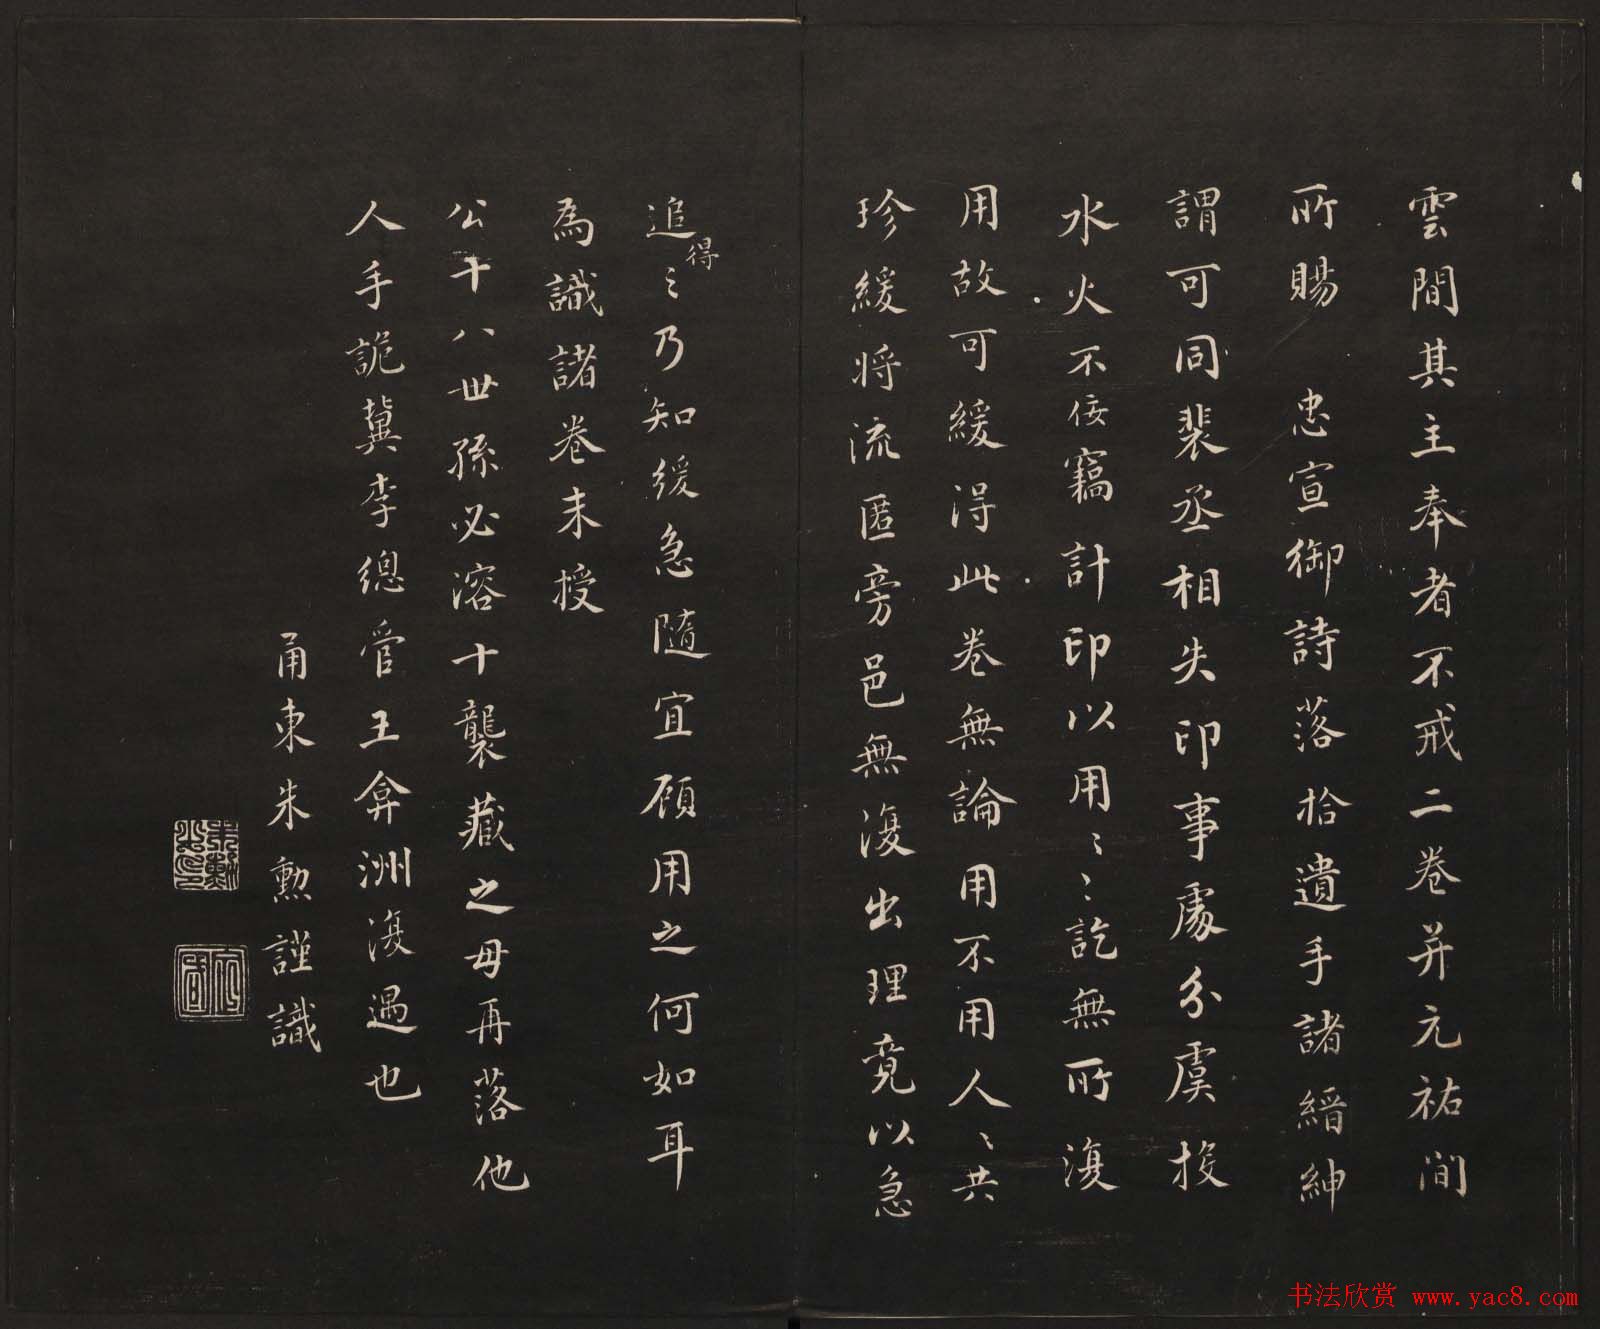 雲間其主奉者不戒二卷并元祐間
所賜　忠宣御詩落拾遺手諸縉紳
謂可同裴丞相失印事處分虞投
水火不佞竊計印以用〻〻訖無所復
用故可緩得此卷無論用不用人〻共
珍緩將流匿旁邑無復出理竟以急
追得〻乃知緩急隨宜顧用之何如耳
為識諸卷末授
公十八世孫必溶十襲藏之毋再落他
人手詭冀李總管王弇洲復遇也
甬東朱勲謹識
书法欣赏 www.yac8.com